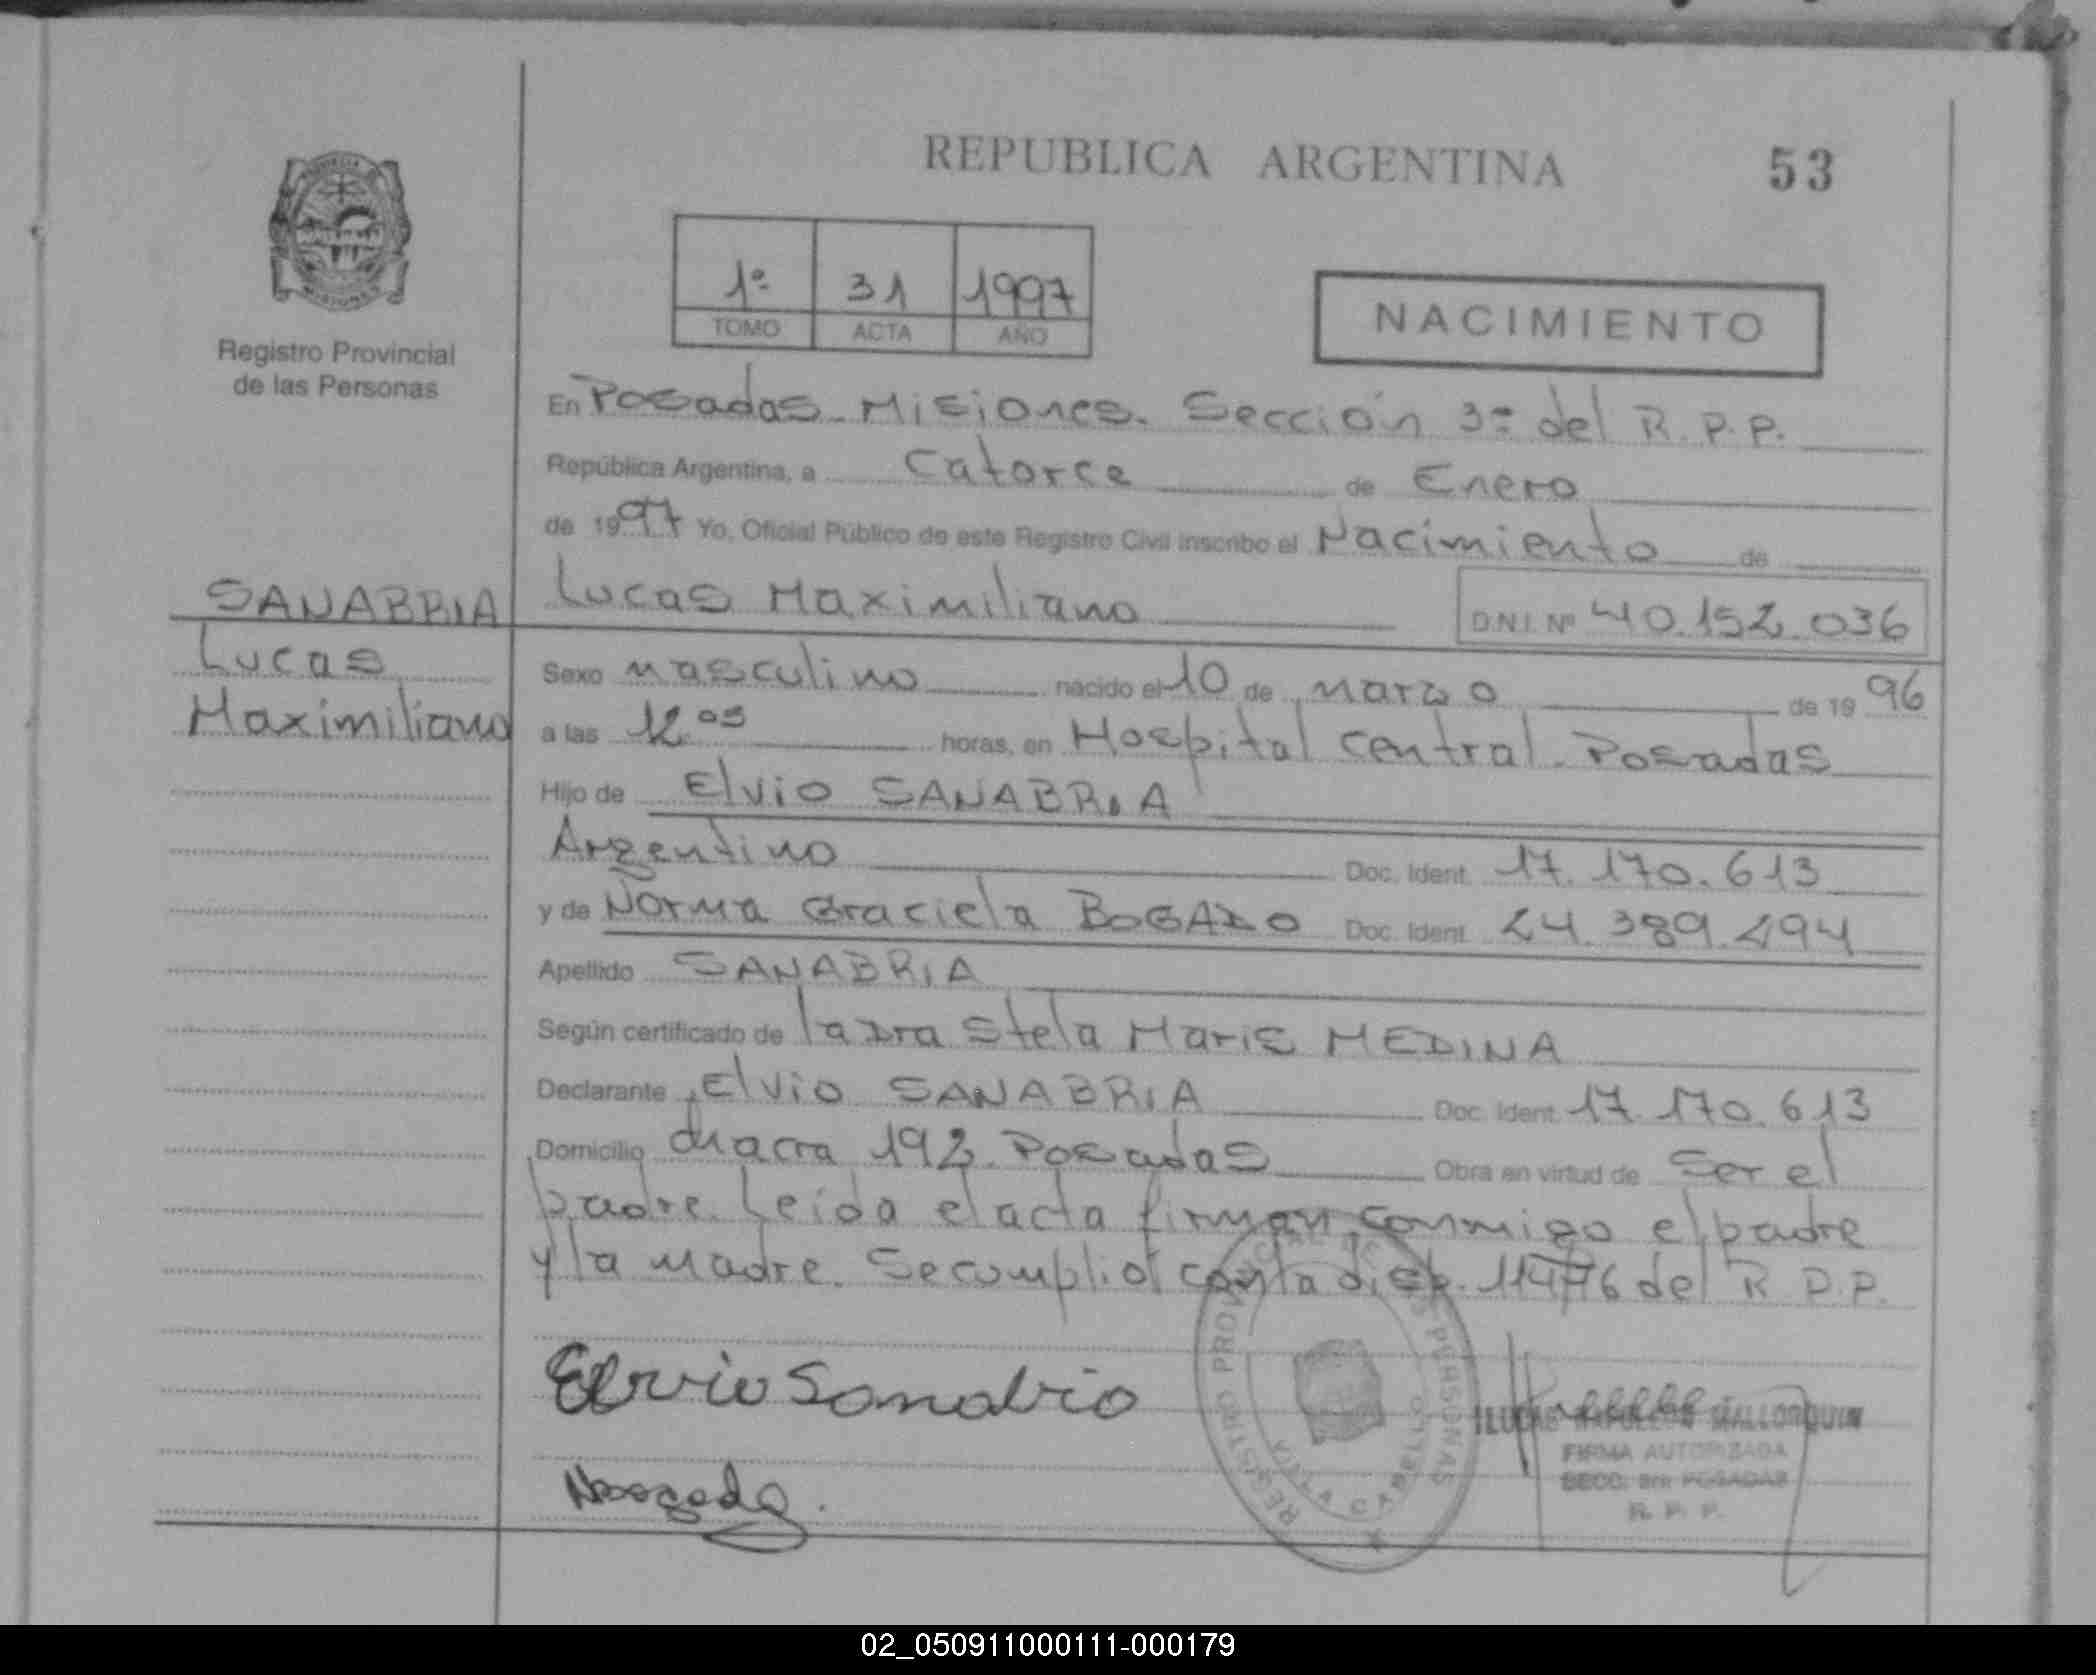 REPUBLICA ARGENTINA 53
1º 31 1997
TOMO ACTA AÑO
NACIMIENTO
MISIONES
Registro Provincial
de las Personas
En Posadas Misiones. Sección 3º del R.P.P.
República Argentina, a Catorce de Enero
de 1997 Yo, Oficial Público de este Registro Civil inscribo el Nacimiento de
SANABRIA Lucas Maximiliano D.N.I. Nº 40.152.036
Lucas
Maximiliano
Sexo masculino nacido el 10 de marzo de 1996
a las 12 05 horas, en Hospital central. Posadas
Hijo de Elvio SANABRIA
Argentino Doc. Ident. 17.170.613
y de Norma Graciela BOGADO Doc. Ident. 24.389.294
Apellido SANABRIA
Según certificado de la Dra Stela Maris MEDINA
Declarante Elvio SANABRIA Doc. Ident. 17.170.613
Domicilio chacra 192 Posadas Obra en virtud de Ser el
padre. Leída el acta firman conmigo el padre
y la madre. Se cumplió con la disp. 114/76 del R.P.P.
Elvio Sanabria
REGISTRO PROVINCIAL DE LAS PERSONAS
VILLA CABELLO
LUCAS NAPOLEON MALLORQUIN
FIRMA AUTORIZADA
SECC. 3ra POSADAS
R. P. P.
02_050911000111-000179